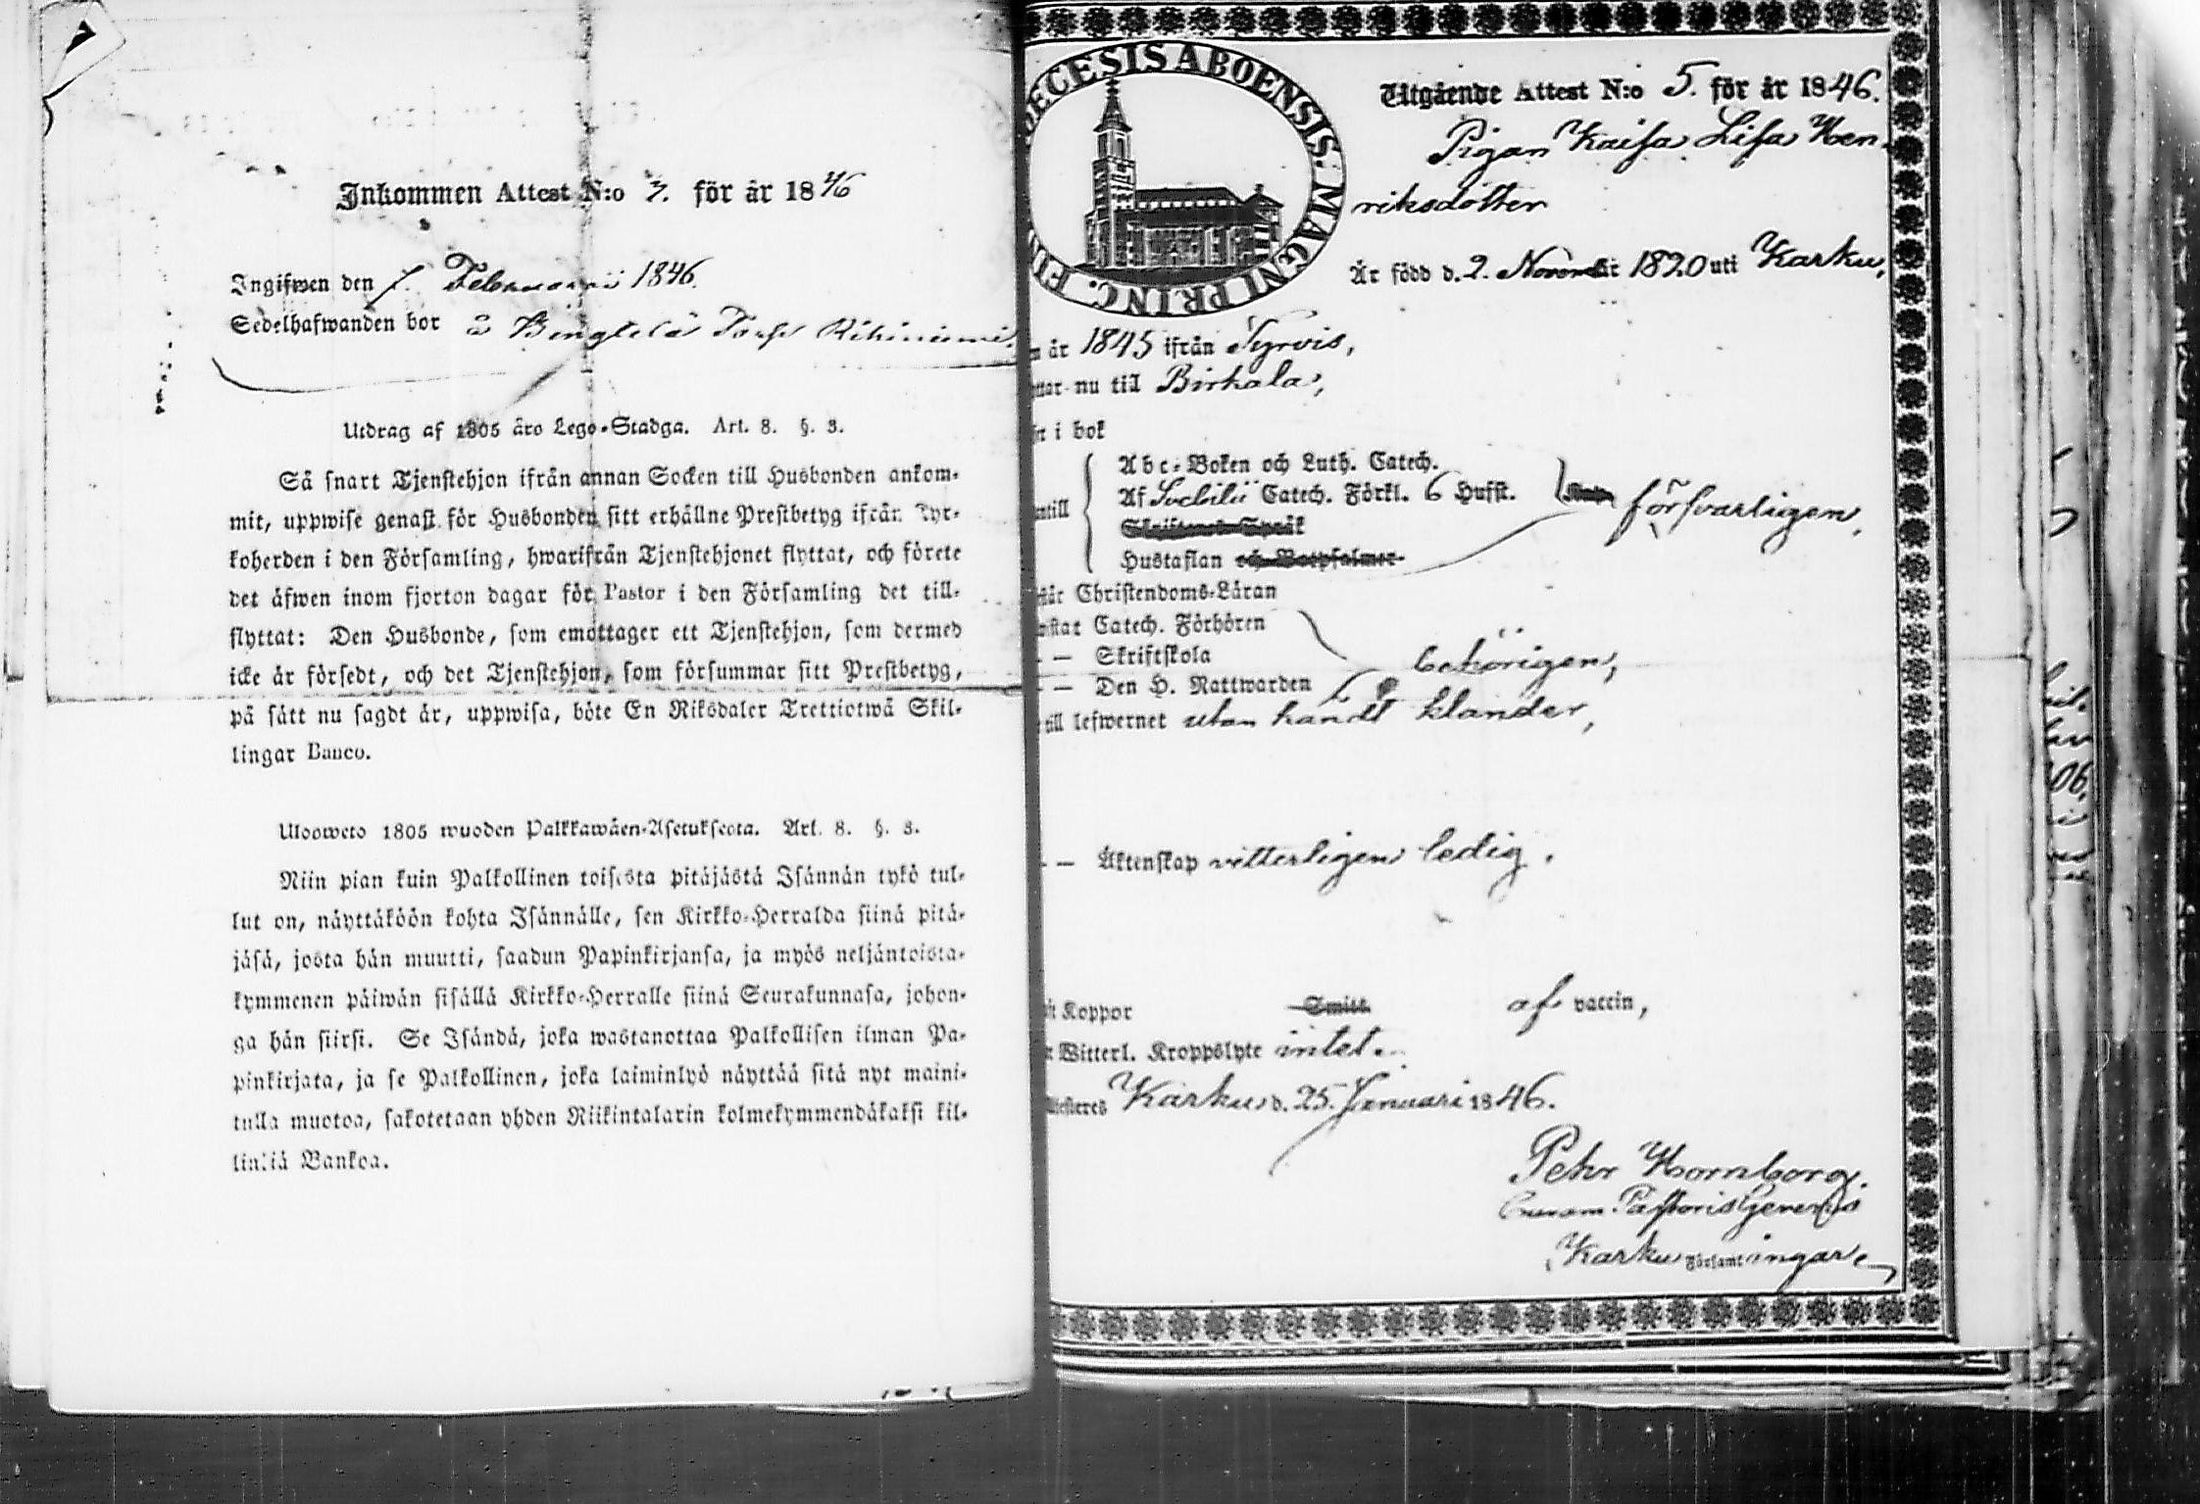 Inkommen Attest N:o 3. för år 1846
Ingifwen den 1. Februarii 1846.
Sedelhafwanden bor å
Utdrag af 1805 års Lego-Stadga. Art. 8. §. 3.
Så snart Tjenstehjon ifrån annan Socken till Husbonden ankom-
mit, uppwise genast för Husbonden sitt erhållne Prestbetyg ifrån Kyr-
koherden i den Församling, hwarifrån Tjenstehjonet flyttat, och förete
det äfwen inom fjorton dagar för Pastor i den Församling det till-
flyttat: Den Husbonde, som emottager ett Tjenstehjon, som dermed
icke är försedt, och det Tjenstehjon, som försummar sitt Prestbetyg,
på sätt nu sagdt är, uppwisa, böte En Riksdaler Trettiotwå Skil-
lingar Banco.
Ulosweto 1805 wuoden Palkkawäen-Asetuksesta. Art. 8. §. 3.
Niin pian kuin Palkollinen toisesta pitäjästä Isännän tykö tul-
lut on, näyttäköön kohta Isännälle, sen Kirkko-Herralda siinä pitä-
jäsä, josta hän muutti, saadun Papinkirjansa, ja myös neljäntoista-
kymmenen päiwän sisällä Kirkko-Herralle siinä Seurakunnasa, johon-
ga hän siirsi. Se Isändä, joka wastanottaa Palkollisen ilman Pa-
pinkirjata, ja se Palkollinen, joka laiminlyö näyttää sitä nyt maini-
tulla muotoa, sakotetaan yhden Riikintalarin kolmekymmendäkaksi kil-
linkiä Bankoa.
DECESIS ABOENSIS. MAGNI PRINC. FIN
Utgående Attest N:o 5. för år 1846.
Pigan Kaisa Lisa Hen-
riksdotter
Är född d. 2. November 1820 uti Karku,
år 1845 ifrån Tyrvis,
nu till Birkala,
i bok
Abc-Boken och Luth. Catech.
Af Svebilii Catech. Förkl. 6 Hufst. försvarligen,
Skriftenes Språk
Hustaflan och Botpsalmer
Christendoms-Läran
Catech. Förhören
— Skriftskola behörigen,
— Den H. Nattwarden
till lefwernet utan kändt klander,
— Äktenskap vitterligen ledig.
Koppor Smitt af vaccin,
Witterl. Kroppslyte intet.
Karku d. 25. Januari 1846.
Pehr Hornborg.
Curam Pastoris Gerens
i Karku Församlingar